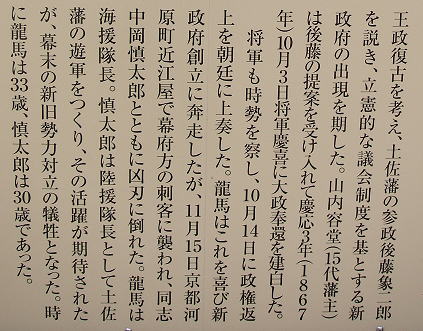 王政復古を考え、土佐藩の参政後藤象二郎
を説き、立憲的な議会制度を基とする新
政府の出現を期した。山内容堂(15代藩主)
は後藤の提案を受け入れて慶応3年(1867
年)10月3日将軍慶喜に大政奉還を建白した。
将軍も時勢を察し、10月14日に政権返
上を朝廷に上奏した。龍馬はこれを喜び新
政府創立に奔走したが、11月15日京都河
原町近江屋で幕府方の刺客に襲われ、同志
中岡慎太郎とともに凶刃に倒れた。龍馬は
海援隊長。慎太郎は陸援隊長として土佐
藩の遊軍をつくり、その活躍が期待された
が、幕末の新旧勢力対立の犠牲となった。時
に龍馬は33歳、慎太郎は30歳であった。